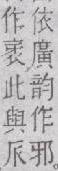 依廣韵作邪。
作衺此與𠂢